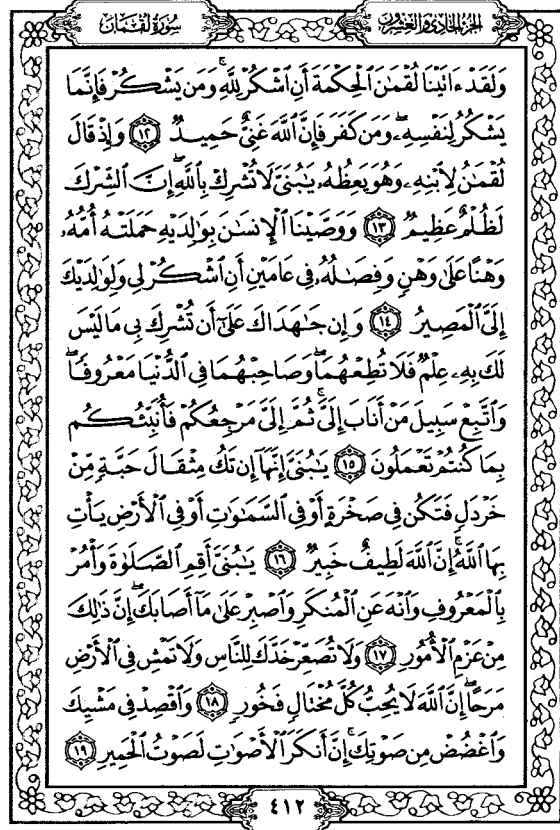 سُورَةُ لُقْمَان
الجزء الحادي والعشرون
وَلَقَدْ ءَاتَيْنَا لُقْمَٰنَ ٱلْحِكْمَةَ أَنِ ٱشْكُرْ لِلَّهِ ۚ وَمَن يَشْكُرْ فَإِنَّمَا
يَشْكُرُ لِنَفْسِهِۦ ۖ وَمَن كَفَرَ فَإِنَّ ٱللَّهَ غَنِىٌّ حَمِيدٌ ١٢ وَإِذْ قَالَ
لُقْمَٰنُ لِٱبْنِهِۦ وَهُوَ يَعِظُهُۥ يَٰبُنَىَّ لَا تُشْرِكْ بِٱللَّهِ ۖ إِنَّ ٱلشِّرْكَ
لَظُلْمٌ عَظِيمٌ ١٣ وَوَصَّيْنَا ٱلْإِنسَٰنَ بِوَٰلِدَيْهِ حَمَلَتْهُ أُمُّهُۥ
وَهْنًا عَلَىٰ وَهْنٍ وَفِصَٰلُهُۥ فِى عَامَيْنِ أَنِ ٱشْكُرْ لِى وَلِوَٰلِدَيْكَ
إِلَىَّ ٱلْمَصِيرُ ١٤ وَإِن جَٰهَدَاكَ عَلَىٰٓ أَن تُشْرِكَ بِى مَا لَيْسَ
لَكَ بِهِۦ عِلْمٌ فَلَا تُطِعْهُمَا ۖ وَصَاحِبْهُمَا فِى ٱلدُّنْيَا مَعْرُوفًا ۖ
وَٱتَّبِعْ سَبِيلَ مَنْ أَنَابَ إِلَىَّ ۚ ثُمَّ إِلَىَّ مَرْجِعُكُمْ فَأُنَبِّئُكُم
بِمَا كُنتُمْ تَعْمَلُونَ ١٥ يَٰبُنَىَّ إِنَّهَآ إِن تَكُ مِثْقَالَ حَبَّةٍ مِّنْ
خَرْدَلٍ فَتَكُن فِى صَخْرَةٍ أَوْ فِى ٱلسَّمَٰوَٰتِ أَوْ فِى ٱلْأَرْضِ يَأْتِ
بِهَا ٱللَّهُ ۚ إِنَّ ٱللَّهَ لَطِيفٌ خَبِيرٌ ١٦ يَٰبُنَىَّ أَقِمِ ٱلصَّلَوٰةَ وَأْمُرْ
بِٱلْمَعْرُوفِ وَٱنْهَ عَنِ ٱلْمُنكَرِ وَٱصْبِرْ عَلَىٰ مَآ أَصَابَكَ ۖ إِنَّ ذَٰلِكَ
مِنْ عَزْمِ ٱلْأُمُورِ ١٧ وَلَا تُصَعِّرْ خَدَّكَ لِلنَّاسِ وَلَا تَمْشِ فِى ٱلْأَرْضِ
مَرَحًا ۖ إِنَّ ٱللَّهَ لَا يُحِبُّ كُلَّ مُخْتَالٍ فَخُورٍ ١٨ وَٱقْصِدْ فِى مَشْيِكَ
وَٱغْضُضْ مِن صَوْتِكَ ۚ إِنَّ أَنكَرَ ٱلْأَصْوَٰتِ لَصَوْتُ ٱلْحَمِيرِ ١٩
٤١٢